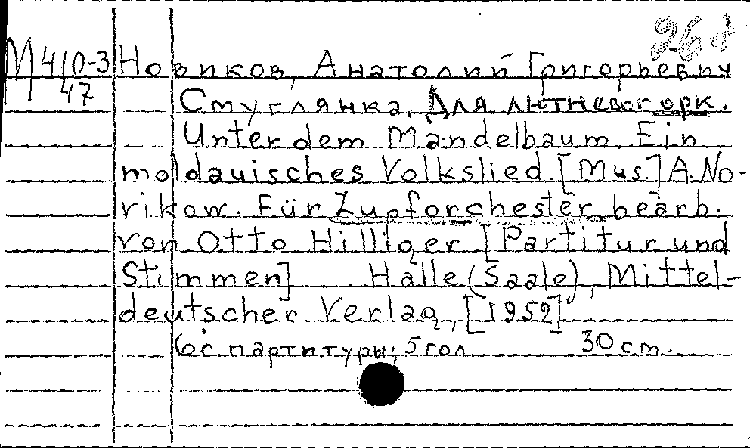 М 410-3 Новиков, Анатолий Григорьевич
47
Смуглянка. Для лютневог орк.
Unter dem Mandelbaum. Ein
moldauisches Volkslied. [Mus.] A. No-
vikow. Für Zupforchester bearb.
von Otto Hilliger [Partitur und
Stimmen] Halle (Saale), Mittel-
deutscher Verlag, [1952]
6 с. партитуры; 5 гол 30 cm.